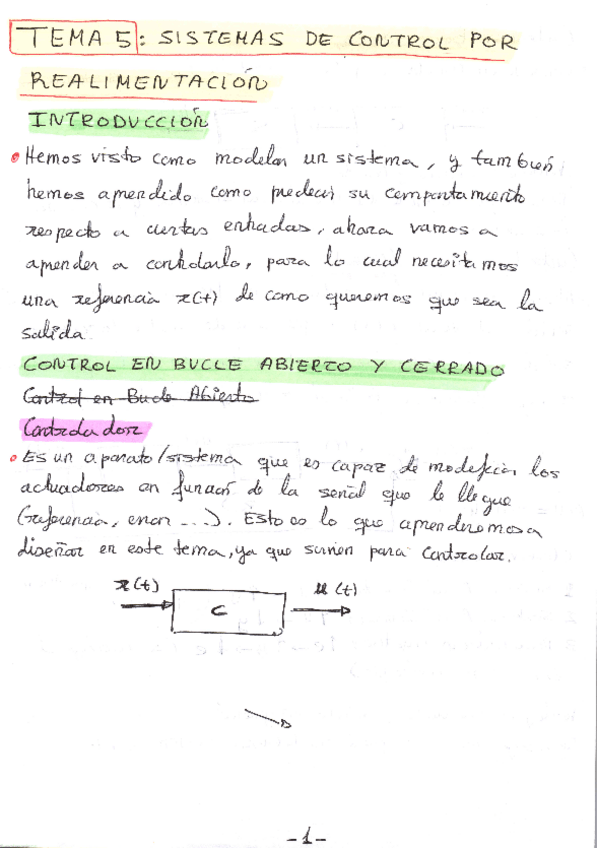 TEMA 5: SISTEMAS DE CONTROL POR
REALIMENTACIÓN
INTRODUCCIÓN
• Hemos visto como modelar un sistema, y también
hemos aprendido como predecir su comportamiento
respecto a ciertas entradas, ahora vamos a
aprender a controlarlo, para lo cual necesitamos
una referencia r(t) de como queremos que sea la
salida
CONTROL EN BUCLE ABIERTO Y CERRADO
Control en Bucle Abierto
Controlador
• Es un aparato/sistema que es capaz de modificar los
actuadores en función de la señal que le llegue
(referencia, error ...). Esto es lo que aprenderemos a
diseñar en este tema, ya que sirven para controlar.
r(t)
C
u(t)
-1-